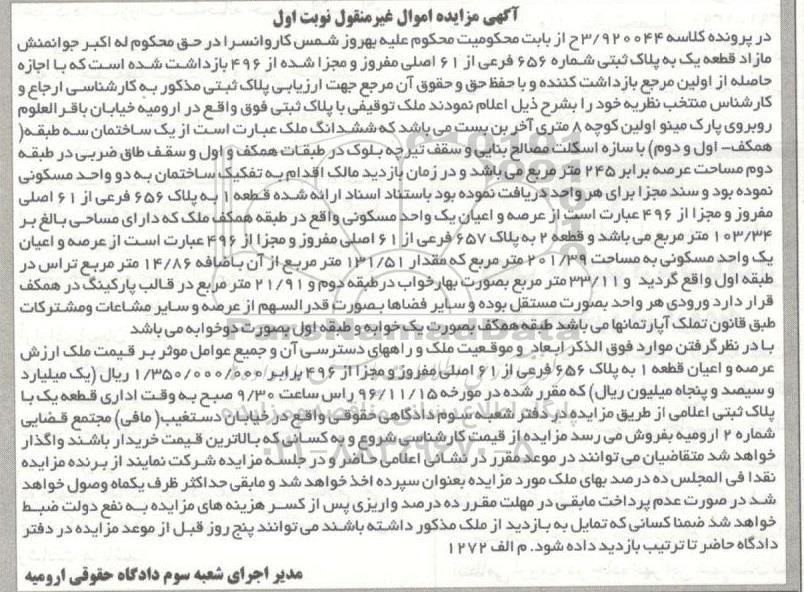 آگهی مزایده اموال غیرمنقول نوبت اول
در پرونده کلاسه ۳/۹۲۰۰۴۴ح از بابت محکومیت محکوم علیه بهروز شمس کاروانسرا در حق محکوم له اکبر جوانمنش
مازاد قطعه یک به پلاک ثبتی شماره ۶۵۶ فرعی از ۶۱ اصلی مفروز و مجزا شده از ۴۹۶ بازداشت شده است که با اجازه
حاصله از اولین مرجع بازداشت کننده و با حفظ حق و حقوق آن مرجع جهت ارزیابی پلاک ثبتی مذکور به کارشناسی ارجاع و
کارشناس منتخب نظریه خود را بشرح ذیل اعلام نمودند ملک توقیفی با پلاک ثبتی فوق واقع در ارومیه خیابان باقرالعلوم
روبروی پارک مینو اولین کوچه ۸ متری آخر بن بست می باشد که ششدانگ ملک عبارت است از یک ساختمان سه طبقه(
همکف- اول و دوم) با سازه اسکلت مصالح بنایی و سقف تیرچه بلوک در طبقات همکف و اول و سقف طاق ضربی در طبقه
دوم مساحت عرصه برابر ۲۴۵ متر مربع می باشد و در زمان بازدید مالک اقدام به تفکیک ساختمان به دو واحد مسکونی
نموده بود و سند مجزا برای هر واحد دریافت نموده بود باستناد اسناد ارائه شده قطعه ۱ به پلاک ۶۵۶ فرعی از ۶۱ اصلی
مفروز و مجزا از ۴۹۶ عبارت است از عرصه و اعیان یک واحد مسکونی واقع در طبقه همکف ملک که دارای مساحی بالغ بر
۱۰۳/۳۴ متر مربع می باشد و قطعه ۲ به پلاک ۶۵۷ فرعی از ۶۱ اصلی مفروز و مجزا از ۴۹۶ عبارت است از عرصه و اعیان
یک واحد مسکونی به مساحت ۲۰۱/۳۹ متر مربع که مقدار ۱۳۱/۵۱ متر مربع از آن باضافه ۱۴/۸۶ متر مربع تراس در
طبقه اول واقع گردید و ۳۳/۱۱ متر مربع بصورت بهارخواب در طبقه دوم و ۲۱/۹۱ متر مربع در قالب پارکینگ در همکف
قرار دارد ورودی هر واحد بصورت مستقل بوده و سایر فضاها بصورت قدرالسهم از عرصه و سایر مشاعات ومشترکات
طبق قانون تملک آپارتمانها می باشد طبقه همکف بصورت یک خوابه و طبقه اول بصورت دوخوابه می باشد
با در نظر گرفتن موارد فوق الذکر ابعاد و موقعیت ملک و راههای دسترسی آن و جمیع عوامل موثر بر قیمت ملک ارزش
عرصه و اعیان قطعه ۱ به پلاک ۶۵۶ فرعی از ۶۱ اصلی مفروز و مجزا از ۴۹۶ برابر ۱/۳۵۰/۰۰۰/۰۰۰ ریال (یک میلیارد
و سیصد و پنجاه میلیون ریال) که مقرر شده در مورخه ۹۶/۱۱/۱۵ راس ساعت ۹/۳۰ صبح به وقت اداری قطعه یک با
پلاک ثبتی اعلامی از طریق مزایده در دفتر شعبه سوم دادگاهی حقوقی واقع در خیابان دستغیب( مافی) مجتمع قضایی
شماره ۲ ارومیه بفروش می رسد مزایده از قیمت کارشناسی شروع و به کسانی که بالاترین قیمت خریدار باشند واگذار
خواهد شد متقاضیان می توانند در موعد مقرر در نشانی اعلامی حاضر و در جلسه مزایده شرکت نمایند از برنده مزایده
نقدا فی المجلس ده درصد بهای ملک مورد مزایده بعنوان سپرده اخذ خواهد شد و مابقی حداکثر ظرف یکماه وصول خواهد
شد در صورت عدم پرداخت مابقی در مهلت مقرر ده درصد واریزی پس از کسر هزینه های مزایده به نفع دولت ضبط
خواهد شد ضمنا کسانی که تمایل به بازدید از ملک مذکور داشته باشند می توانند پنج روز قبل از موعد مزایده در دفتر
دادگاه حاضر تا ترتیب بازدید داده شود. م الف ۱۲۷۲
مدیر اجرای شعبه سوم دادگاه حقوقی ارومیه